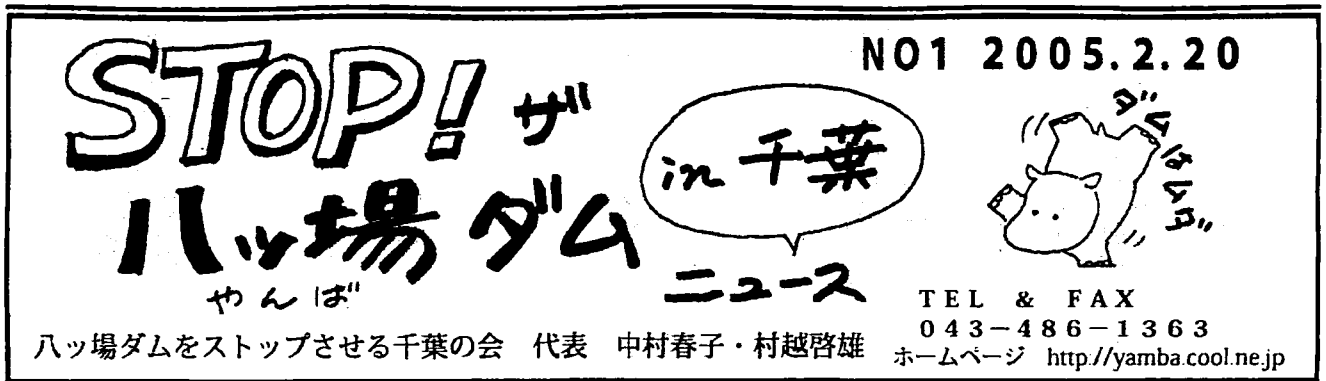 NO1 2005.2.20
STOP! ザ
八ッ場ダム
やんば
in 千葉
ニュース
ダムはムダ
TEL & FAX
043-486-1363
八ッ場ダムをストップさせる千葉の会 代表 中村春子・村越啓雄
ホームページ http://yamba.cool.ne.jp